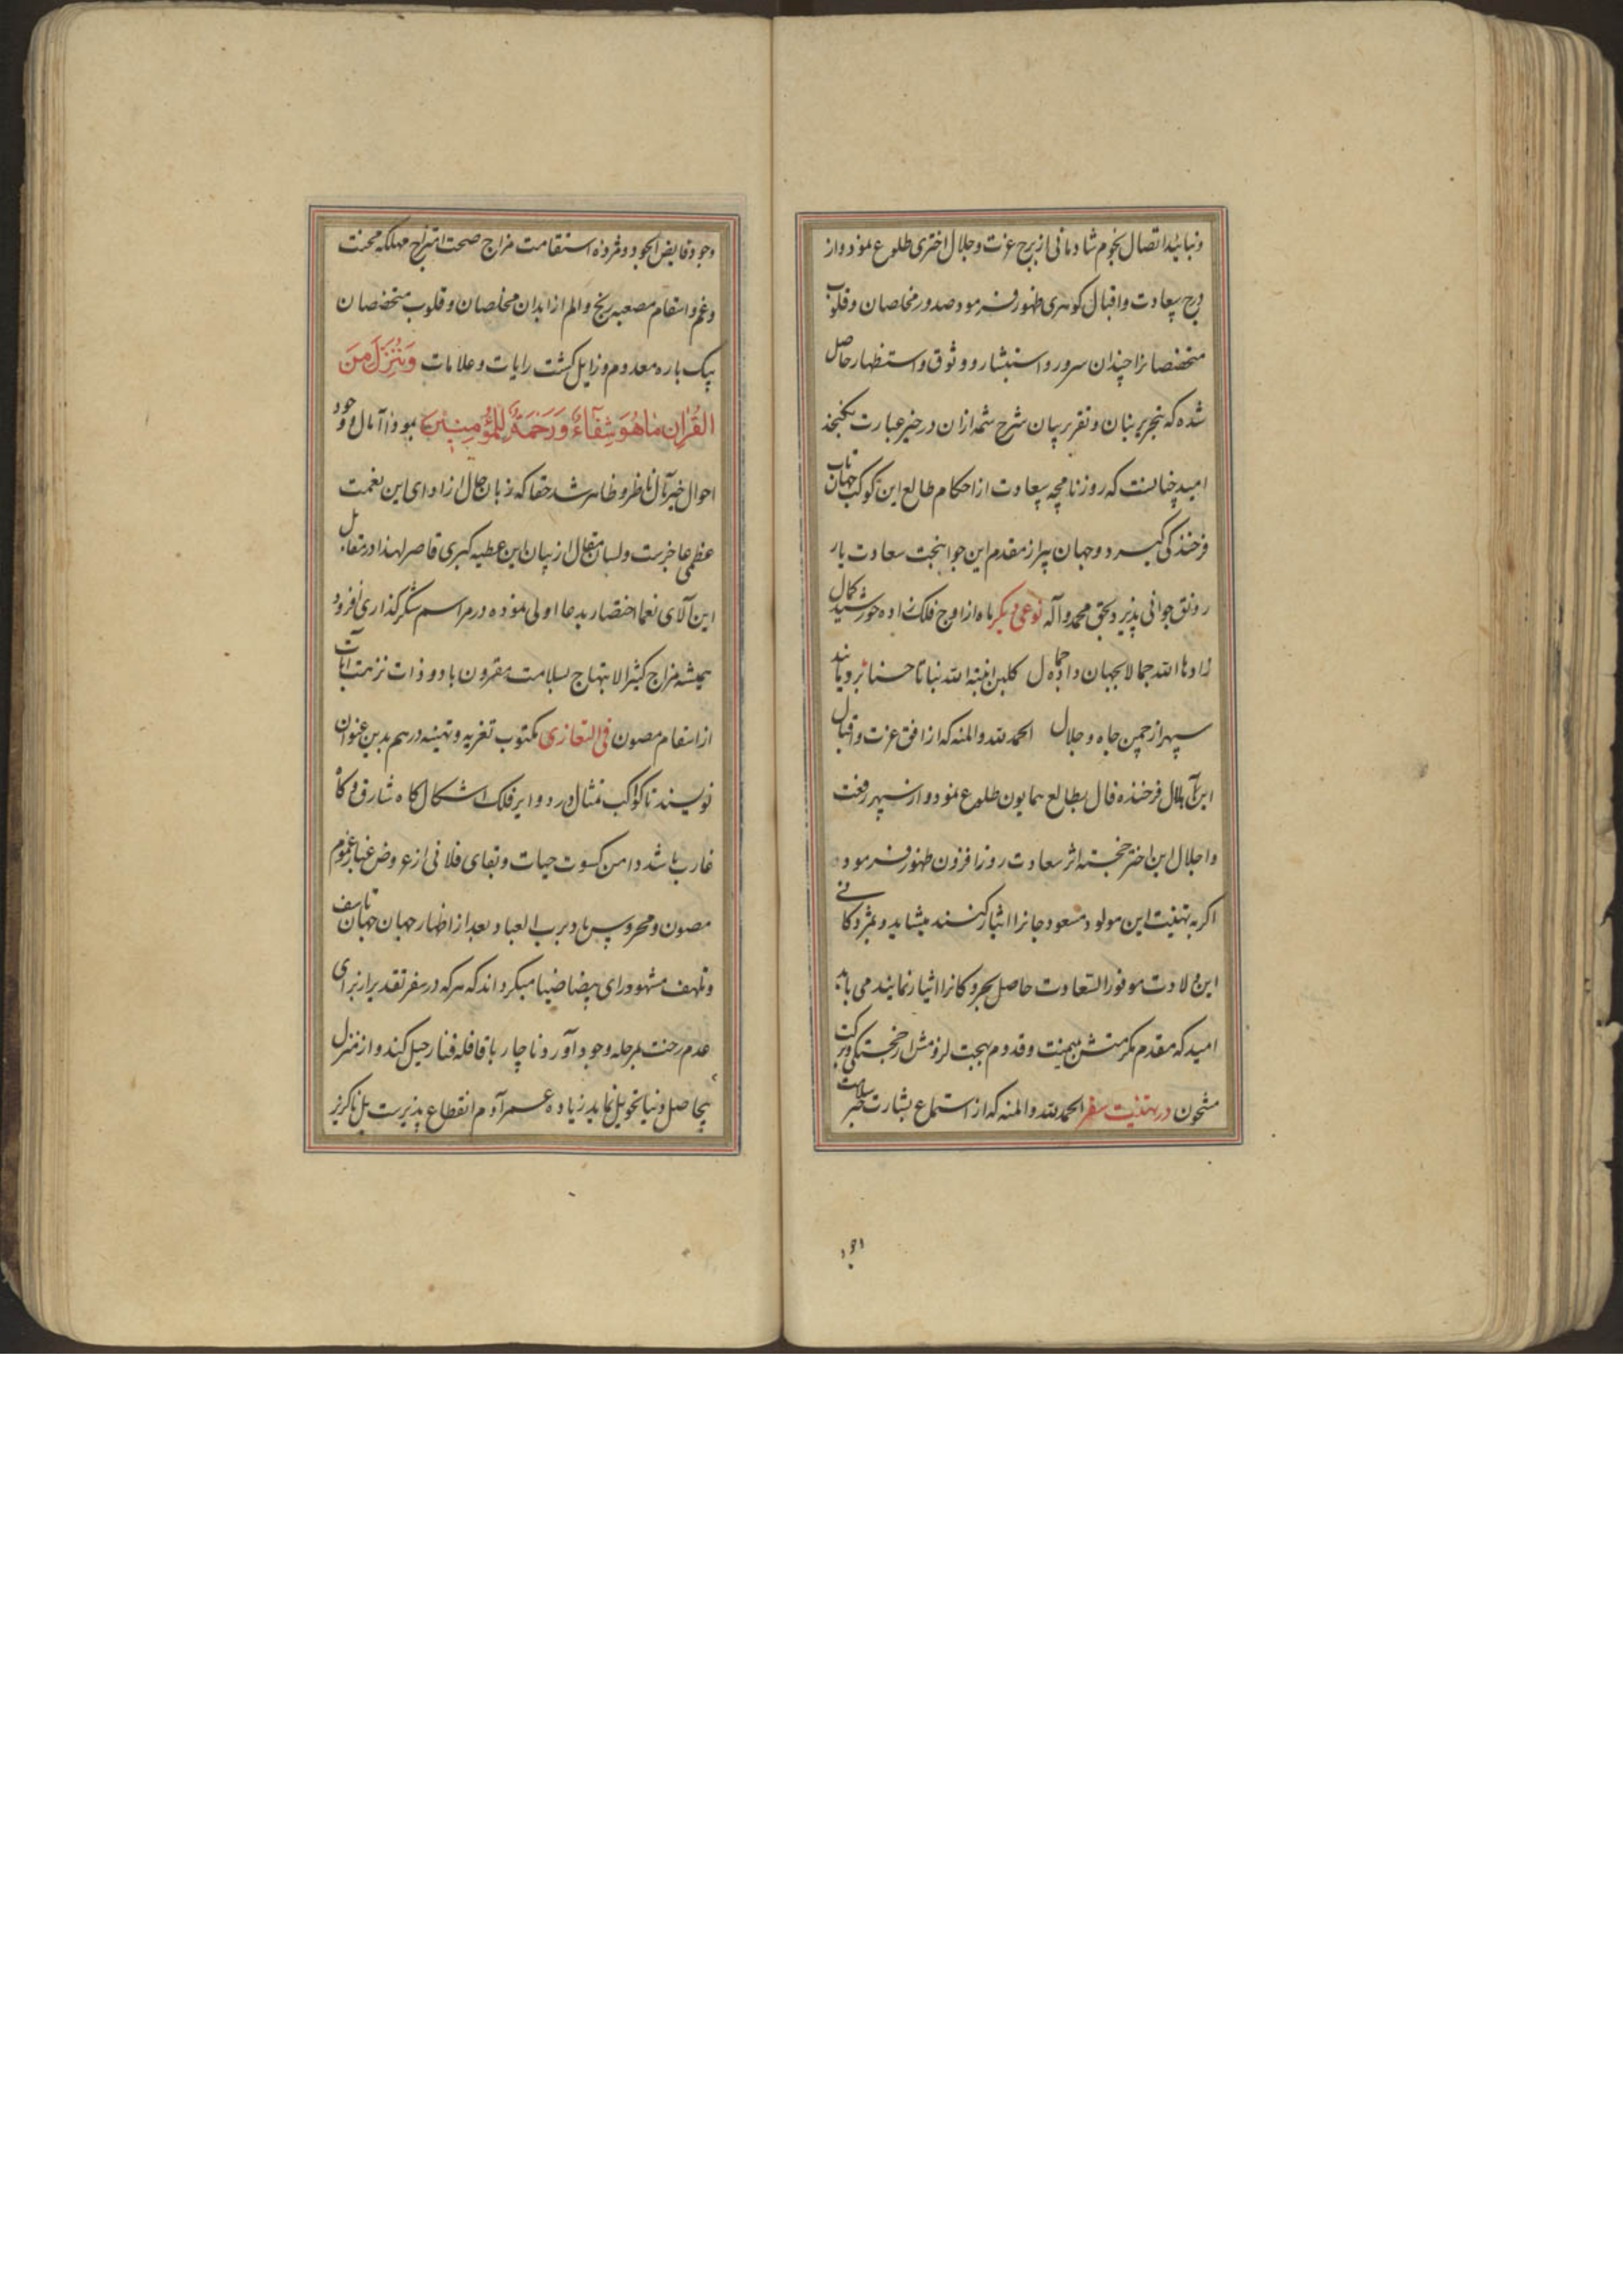 وتباشیر اتصال نجوم شادمانی از برج عزت وجلال اختری طلوع نمود واز
درج سعادت واقبال کوهری ظهور فرمود صدور مخلصان وقلوب
متخصصانرا چندان سرور واستبشار ووثوق واستظهار حاصل
شده که بتحریر بنان وتقریر بیان شرح شمه ازان در حیز عبارت نکنجد
امید چنانست که روزنامچه سعادت از احکام طالع این کوکب جهان تاب
فرخندکی کیرد وجهان پیر از مقدم این جوانبخت سعادت یار
رونق جوانی پذیرد بحق محمد وآله نوعی دیکر ماه از اوج فلک زاده خورشید کمال
زادها الله جمالا بجهان داد جمال کلبن انبته الله نباتا حسنا بر دماند
سپهر از چمن جاه وجلال الحمد لله والمنه که از افق عزت واقبال
این هلال فرخنده فال بطالع همایون طلوع نمود واز سپهر رفعت
واجلال این اختر خجسته اثر سعادت روز افزون ظهور فرمود
اکر به تهنیت این مولود مسعود جانرا ایثار کنند میشاید وبمژدکانی
این ولادت موفور السعادت حاصل بحر وکانرا ایثار نمایند می باید
امید که مقدم مکرمتش بمیمنت وقدوم بهجت لزومش از خجستکی وبرکت
مشحون در تهنیت سفر الحمد لله والمنه که از استماع بشارت خبر سلامت
وجود فایض الجود ومژده استقامت مزاج صحت امتزاج مهلکه محنت
وغم واسقام مصعبه رنج والم از ابدان مخلصان وقلوب متخصصان
بیک باره معدوم وزایل کشت رایات وعلامات وَنُنَزِّلُ مِنَ
القُرآنِ مَا هُوَ شِفَآءٌ وَرَحْمَةٌ لِلْمُؤمِنِینَ بود از آمال وجود
احوال خیر مآل ناظر وظاهر شد حقا که زبان حال از ادای این نعمت
عظمی عاجزست ولسان مقال از بیان این عطیه کبری قاصر لهذا در مقابل
این آلای نعما اختصار بدعا اولی نموده در مراسم شکرکذاری افزود
همیشه مزاج کثیر الابتهاج بسلامت مقرون باد وذات نزهت آیات
از اسقام مصون فی التعازی مکتوب تعزیه وتهنیه در هم بدین عنوان
نویسند تا کواکب تمثال در دوایر فلک اشکال کاه شارق وکاه
غارب باشد دامن کسوت حیات وبقای فلانی از عروض غبار غموم
مصون ومحروس باد برب العباد بعد از اظهار جهان جهان تاسف
وتلهف مشهود رای بیضا ضیا میکرداند که هر که در سفر تقدیر از برای
عدم رخت بمرحله وجود آورد ناچار با قافله فنا رحیل کند واز منزل
بیحاصل دنیا تحویل نماید زیاده عمر آدم انقطاع پذیرست بل ناکزیر